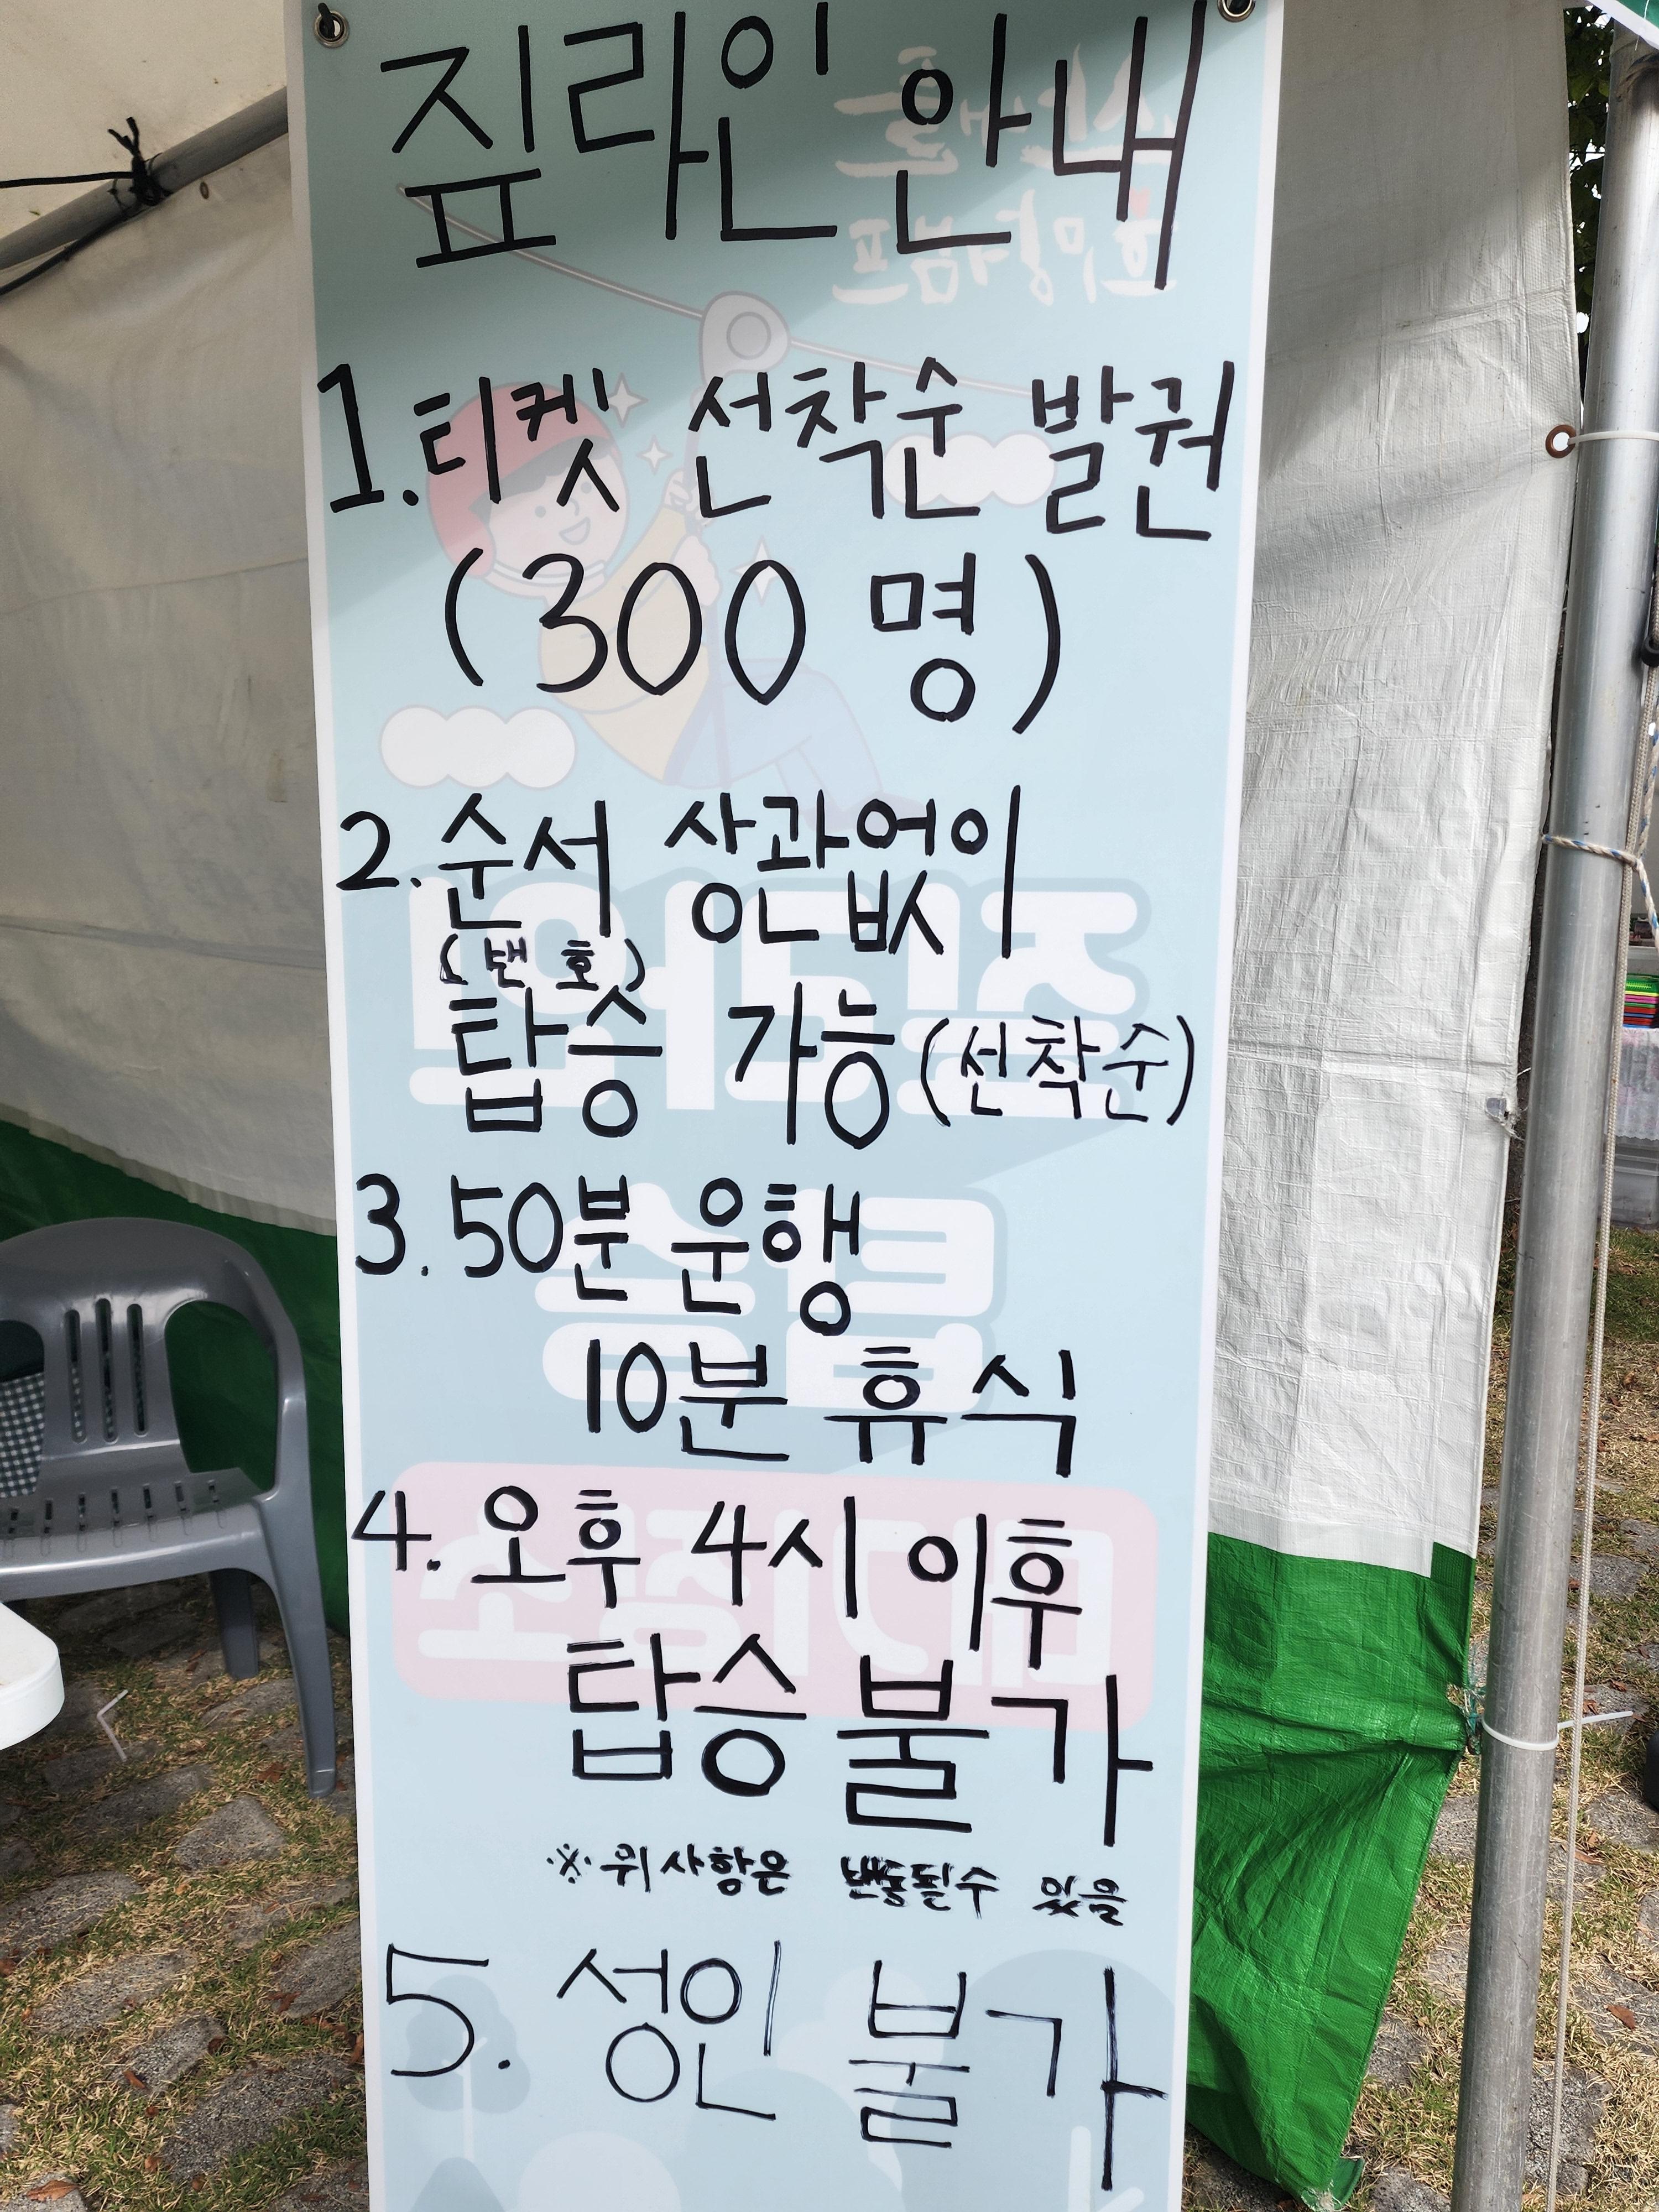 짚라인 안내
1. 티켓 선착순 발권
(300 명)
2. 순서 상관없이
(번호)
탑승 가능 (선착순)
3. 50분 운행
10분 휴식
4. 오후 4시 이후
탑승 불가
※ 위 사항은 변동될 수 있음
5. 성인 불가